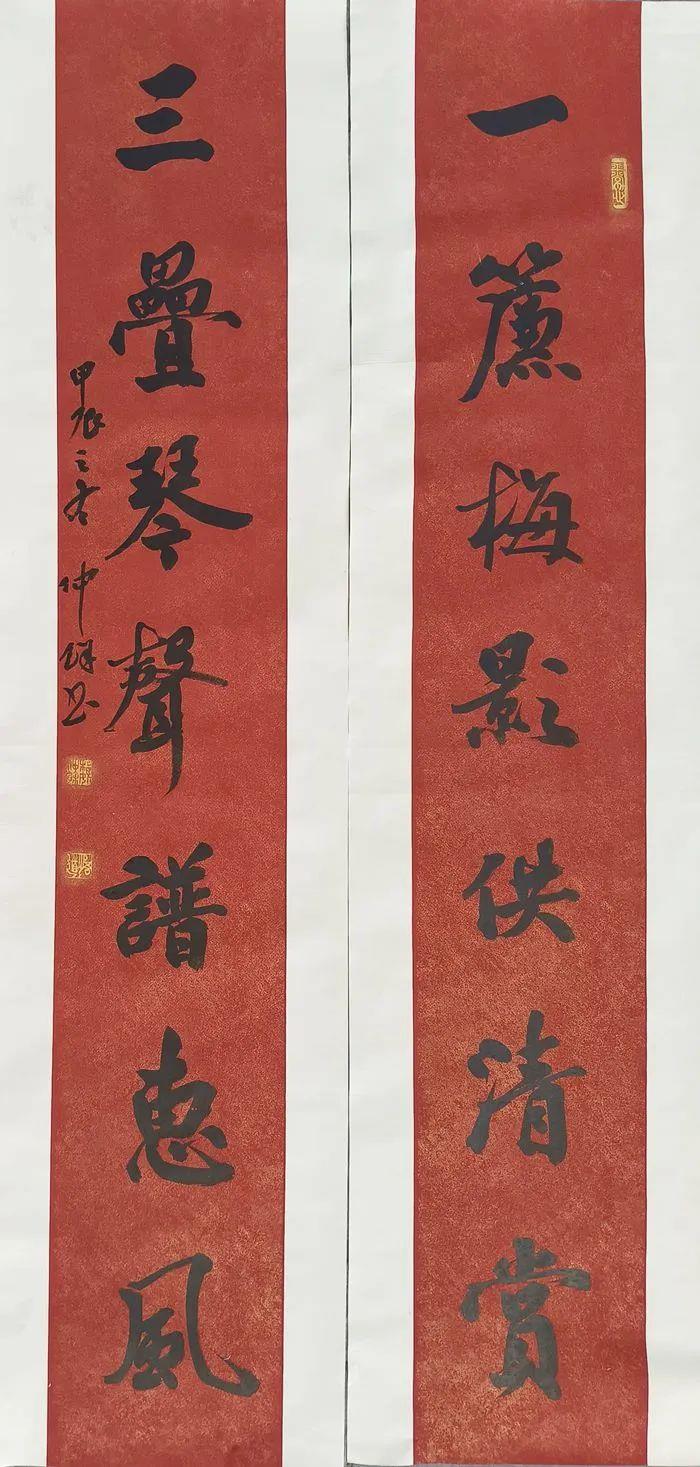 一簾梅影供清賞
三疊琴聲譜惠風
甲辰之冬 仲鐸書